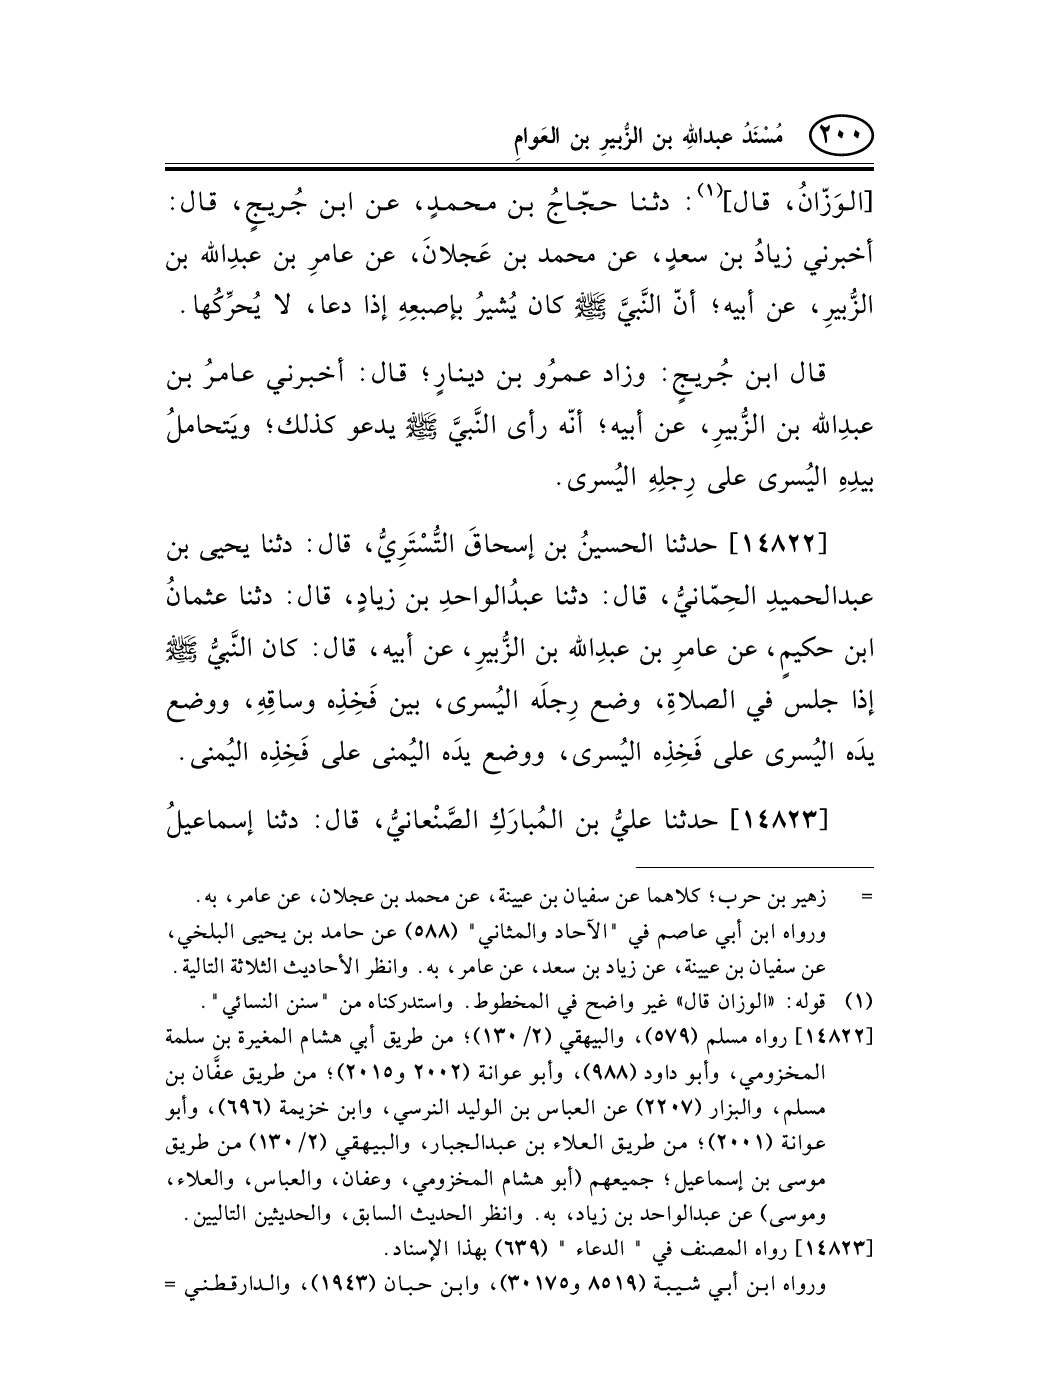 ٢٠٠ مُسْنَدُ عبدالله بن الزُّبيرِ بن العَوامِ
[الوَزّانُ، قال](١): دثنا حجّاجُ بن محمدٍ، عن ابن جُريجٍ، قال:
أخبرني زيادُ بن سعدٍ، عن محمد بن عَجلانَ، عن عامرِ بن عبدِالله بن
الزُّبيرِ، عن أبيه؛ أنّ النَّبيَّ ﷺ كان يُشيرُ بإصبعِهِ إذا دعا، لا يُحرِّكُها.
قال ابن جُريجٍ: وزاد عمرُو بن دينارٍ؛ قال: أخبرني عامرُ بن
عبدِالله بن الزُّبيرِ، عن أبيه؛ أنّه رأى النَّبيَّ ﷺ يدعو كذلك؛ ويَتحاملُ
بيدِهِ اليُسرى على رِجلِهِ اليُسرى.
[١٤٨٢٢] حدثنا الحسينُ بن إسحاقَ التُّسْتَرِيُّ، قال: دثنا يحيى بن
عبدالحميدِ الحِمّانيُّ، قال: دثنا عبدُالواحدِ بن زيادٍ، قال: دثنا عثمانُ
ابن حكيمٍ، عن عامرِ بن عبدِالله بن الزُّبيرِ، عن أبيه، قال: كان النَّبيُّ ﷺ
إذا جلس في الصلاةِ، وضع رِجلَه اليُسرى، بين فَخِذِه وساقِهِ، ووضع
يدَه اليُسرى على فَخِذِه اليُسرى، ووضع يدَه اليُمنى على فَخِذِه اليُمنى.
[١٤٨٢٣] حدثنا عليُّ بن المُبارَكِ الصَّنْعانيُّ، قال: دثنا إسماعيلُ
= زهير بن حرب؛ كلاهما عن سفيان بن عيينة، عن محمد بن عجلان، عن عامر، به.
ورواه ابن أبي عاصم في "الآحاد والمثاني" (٥٨٨) عن حامد بن يحيى البلخي،
عن سفيان بن عيينة، عن زياد بن سعد، عن عامر، به. وانظر الأحاديث الثلاثة التالية.
(١) قوله: «الوزان قال» غير واضح في المخطوط. واستدركناه من "سنن النسائي".
[١٤٨٢٢] رواه مسلم (٥٧٩)، والبيهقي (٢/ ١٣٠)؛ من طريق أبي هشام المغيرة بن سلمة
المخزومي، وأبو داود (٩٨٨)، وأبو عوانة (٢٠٠٢ و٢٠١٥)؛ من طريق عفَّان بن
مسلم، والبزار (٢٢٠٧) عن العباس بن الوليد النرسي، وابن خزيمة (٦٩٦)، وأبو
عوانة (٢٠٠١)؛ من طريق العلاء بن عبدالجبار، والبيهقي (٢/ ١٣٠) من طريق
موسى بن إسماعيل؛ جميعهم (أبو هشام المخزومي، وعفان، والعباس، والعلاء،
وموسى) عن عبدالواحد بن زياد، به. وانظر الحديث السابق، والحديثين التاليين.
[١٤٨٢٣] رواه المصنف في " الدعاء " (٦٣٩) بهذا الإسناد.
ورواه ابن أبي شيبة (٨٥١٩ و٣٠١٧٥)، وابن حبان (١٩٤٣)، والدارقطني =